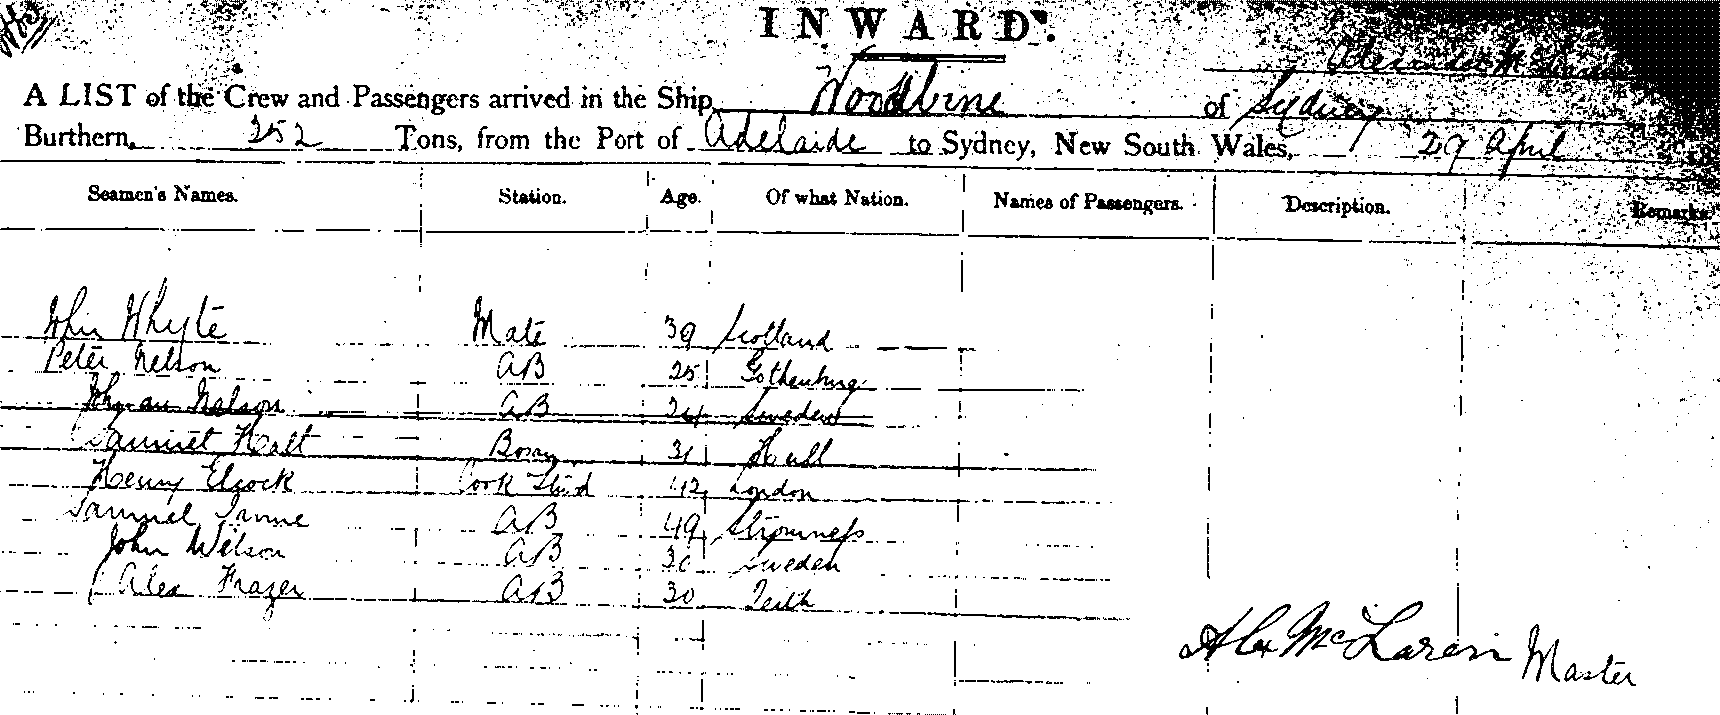 INWARD.
Alexander McLaren
A LIST of the Crew and Passengers arrived in the Ship Woodbine of Sydney
Burthern, 252 Tons, from the Port of Adelaide to Sydney, New South Wales, 29 April
Seamen's Names. Station. Age. Of what Nation. Names of Passengers. Description. Remarks
John Whyte Mate 39 Scotland
Peter Nelson AB 25 Gothenburg
Nelson AB 24 Sweden
Samuel Halt Bosn 31 Hull
Henry Elcock Cook Stud 42 London
Samuel AB 49 Stromness
John Wilson AB 30 Sweden
Alex Frazer AB 30 Leith
Alex McLaren Master